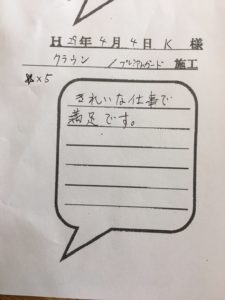 H29年4月4日 K 様
クラウン / プレミアムガード 施工
×5
きれいな仕事で
満足です。